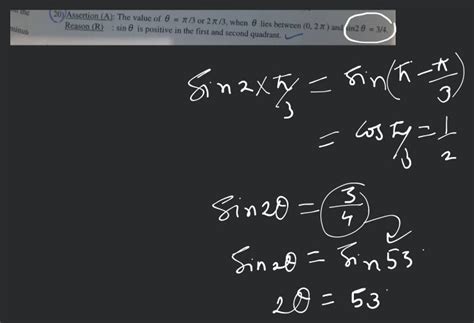 20) Assertion (A): The value of θ = π/3 or 2π/3, when θ lies between (0, 2π) and sin2θ = 3/4.
Reason (R) : sin θ is positive in the first and second quadrant.
Sin 2×π/3 = Sin(π - π/3)
= cos π/3 = 1/2
Sin2θ = 3/4
Sin2θ = Sin 53°
2θ = 53°